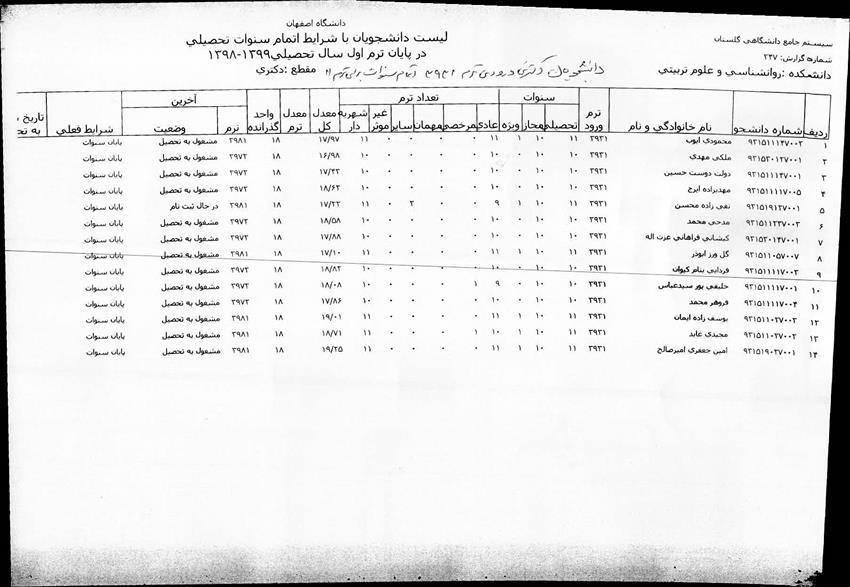 دانشگاه اصفهان
لیست دانشجویان با شرایط اتمام سنوات تحصیلي
در پایان ترم اول سال تحصیلي ۱۳۹۹-۱۳۹۸
سیستم جامع دانشگاهی گلستان
شماره گزارش: ۲۴۷
دانشکده :روانشناسي و علوم تربیتي
مقطع :دکتري
دانشجویان دکتری ورودی ترم ۳۹۳۱ اتمام سنوات برای ترم
ردیف شماره دانشجو نام خانوادگي و نام ترم ورود سنوات تحصیلي مجاز ویژه تعداد ترم عادي مرخصي مهمان سایر غیر موثر شهریه دار معدل کل معدل ترم واحد گذرانده آخرین ترم وضعیت شرایط فعلي تاریخ
۱ ۹۳۱۵۱۱۱۴۷۰۰۲ محمودي ایوب ۳۹۳۱ ۱۱ ۱۰ ۱ ۱۱ ۰ ۰ ۰ ۰ ۱۱ ۱۷/۹۷ ۱۸ ۳۹۸۱ مشغول به تحصیل پایان سنوات
۲ ۹۳۱۵۳۰۱۲۷۰۰۱ ملکي مهدي ۳۹۳۱ ۱۰ ۱۰ ۰ ۱۰ ۰ ۰ ۰ ۰ ۱۰ ۱۶/۹۸ ۱۸ ۳۹۷۲ مشغول به تحصیل پایان سنوات
۳ ۹۳۱۵۱۱۱۴۷۰۰۱ دولت دوست حسین ۳۹۳۱ ۱۰ ۱۰ ۰ ۱۰ ۰ ۰ ۰ ۰ ۱۰ ۱۷/۴۳ ۱۸ ۳۹۷۲ مشغول به تحصیل پایان سنوات
۴ ۹۳۱۵۱۱۱۱۷۰۰۵ مهدیزاده ایرج ۳۹۳۱ ۱۰ ۱۰ ۰ ۱۰ ۰ ۰ ۰ ۰ ۱۰ ۱۸/۶۳ ۱۸ ۳۹۷۲ مشغول به تحصیل پایان سنوات
۵ ۹۳۱۵۱۹۱۲۷۰۰۱ تقي زاده محسن ۳۹۳۱ ۱۱ ۱۰ ۱ ۹ ۰ ۰ ۲ ۰ ۱۱ ۱۷/۲۲ ۱۸ ۳۹۸۱ در حال ثبت نام پایان سنوات
۶ ۹۳۱۵۱۱۲۳۷۰۰۳ مدحي محمد ۳۹۳۱ ۱۰ ۱۰ ۰ ۱۰ ۰ ۰ ۰ ۰ ۱۰ ۱۸/۵۸ ۱۸ ۳۹۷۲ مشغول به تحصیل پایان سنوات
۷ ۹۳۱۵۳۰۱۴۷۰۰۱ کیشاني فراهاني عزت اله ۳۹۳۱ ۱۰ ۱۰ ۰ ۱۰ ۰ ۰ ۰ ۰ ۱۰ ۱۷/۸۸ ۱۸ ۳۹۷۲ مشغول به تحصیل پایان سنوات
۸ ۹۳۱۵۱۱۰۵۷۰۰۷ گل ورز ابوذر ۳۹۳۱ ۱۱ ۱۰ ۱ ۱۱ ۰ ۰ ۰ ۰ ۱۱ ۱۷/۱۰ ۱۸ ۳۹۸۱ مشغول به تحصیل پایان سنوات
۹ ۹۳۱۵۱۱۱۱۷۰۰۲ فردایي بنام کیوان ۳۹۳۱ ۱۰ ۱۰ ۰ ۱۰ ۰ ۰ ۰ ۰ ۱۰ ۱۸/۸۲ ۱۸ ۳۹۷۲ مشغول به تحصیل پایان سنوات
۱۰ ۹۳۱۵۱۱۱۱۷۰۰۱ خلیفي پور سیدعباس ۳۹۳۱ ۱۰ ۱۰ ۰ ۹ ۱ ۰ ۰ ۰ ۱۰ ۱۸/۰۸ ۱۸ ۳۹۷۲ مشغول به تحصیل پایان سنوات
۱۱ ۹۳۱۵۱۱۱۱۷۰۰۴ فروهر محمد ۳۹۳۱ ۱۰ ۱۰ ۰ ۱۰ ۰ ۰ ۰ ۰ ۱۰ ۱۷/۸۶ ۱۸ ۳۹۷۲ مشغول به تحصیل پایان سنوات
۱۲ ۹۳۱۵۱۱۰۲۷۰۰۳ یوسف زاده ایمان ۳۹۳۱ ۱۱ ۱۰ ۱ ۱۱ ۰ ۰ ۰ ۰ ۱۱ ۱۹/۰۱ ۱۸ ۳۹۸۱ مشغول به تحصیل پایان سنوات
۱۳ ۹۳۱۵۱۱۰۲۷۰۰۲ مجیدي عابد ۳۹۳۱ ۱۱ ۱۰ ۱ ۱۰ ۱ ۰ ۰ ۰ ۱۱ ۱۸/۷۱ ۱۸ ۳۹۸۱ مشغول به تحصیل پایان سنوات
۱۴ ۹۳۱۵۱۹۰۲۷۰۰۱ امین جعفري امیرصالح ۳۹۳۱ ۱۱ ۱۰ ۱ ۱۱ ۰ ۰ ۰ ۰ ۱۱ ۱۹/۲۵ ۱۸ ۳۹۸۱ مشغول به تحصیل پایان سنوات